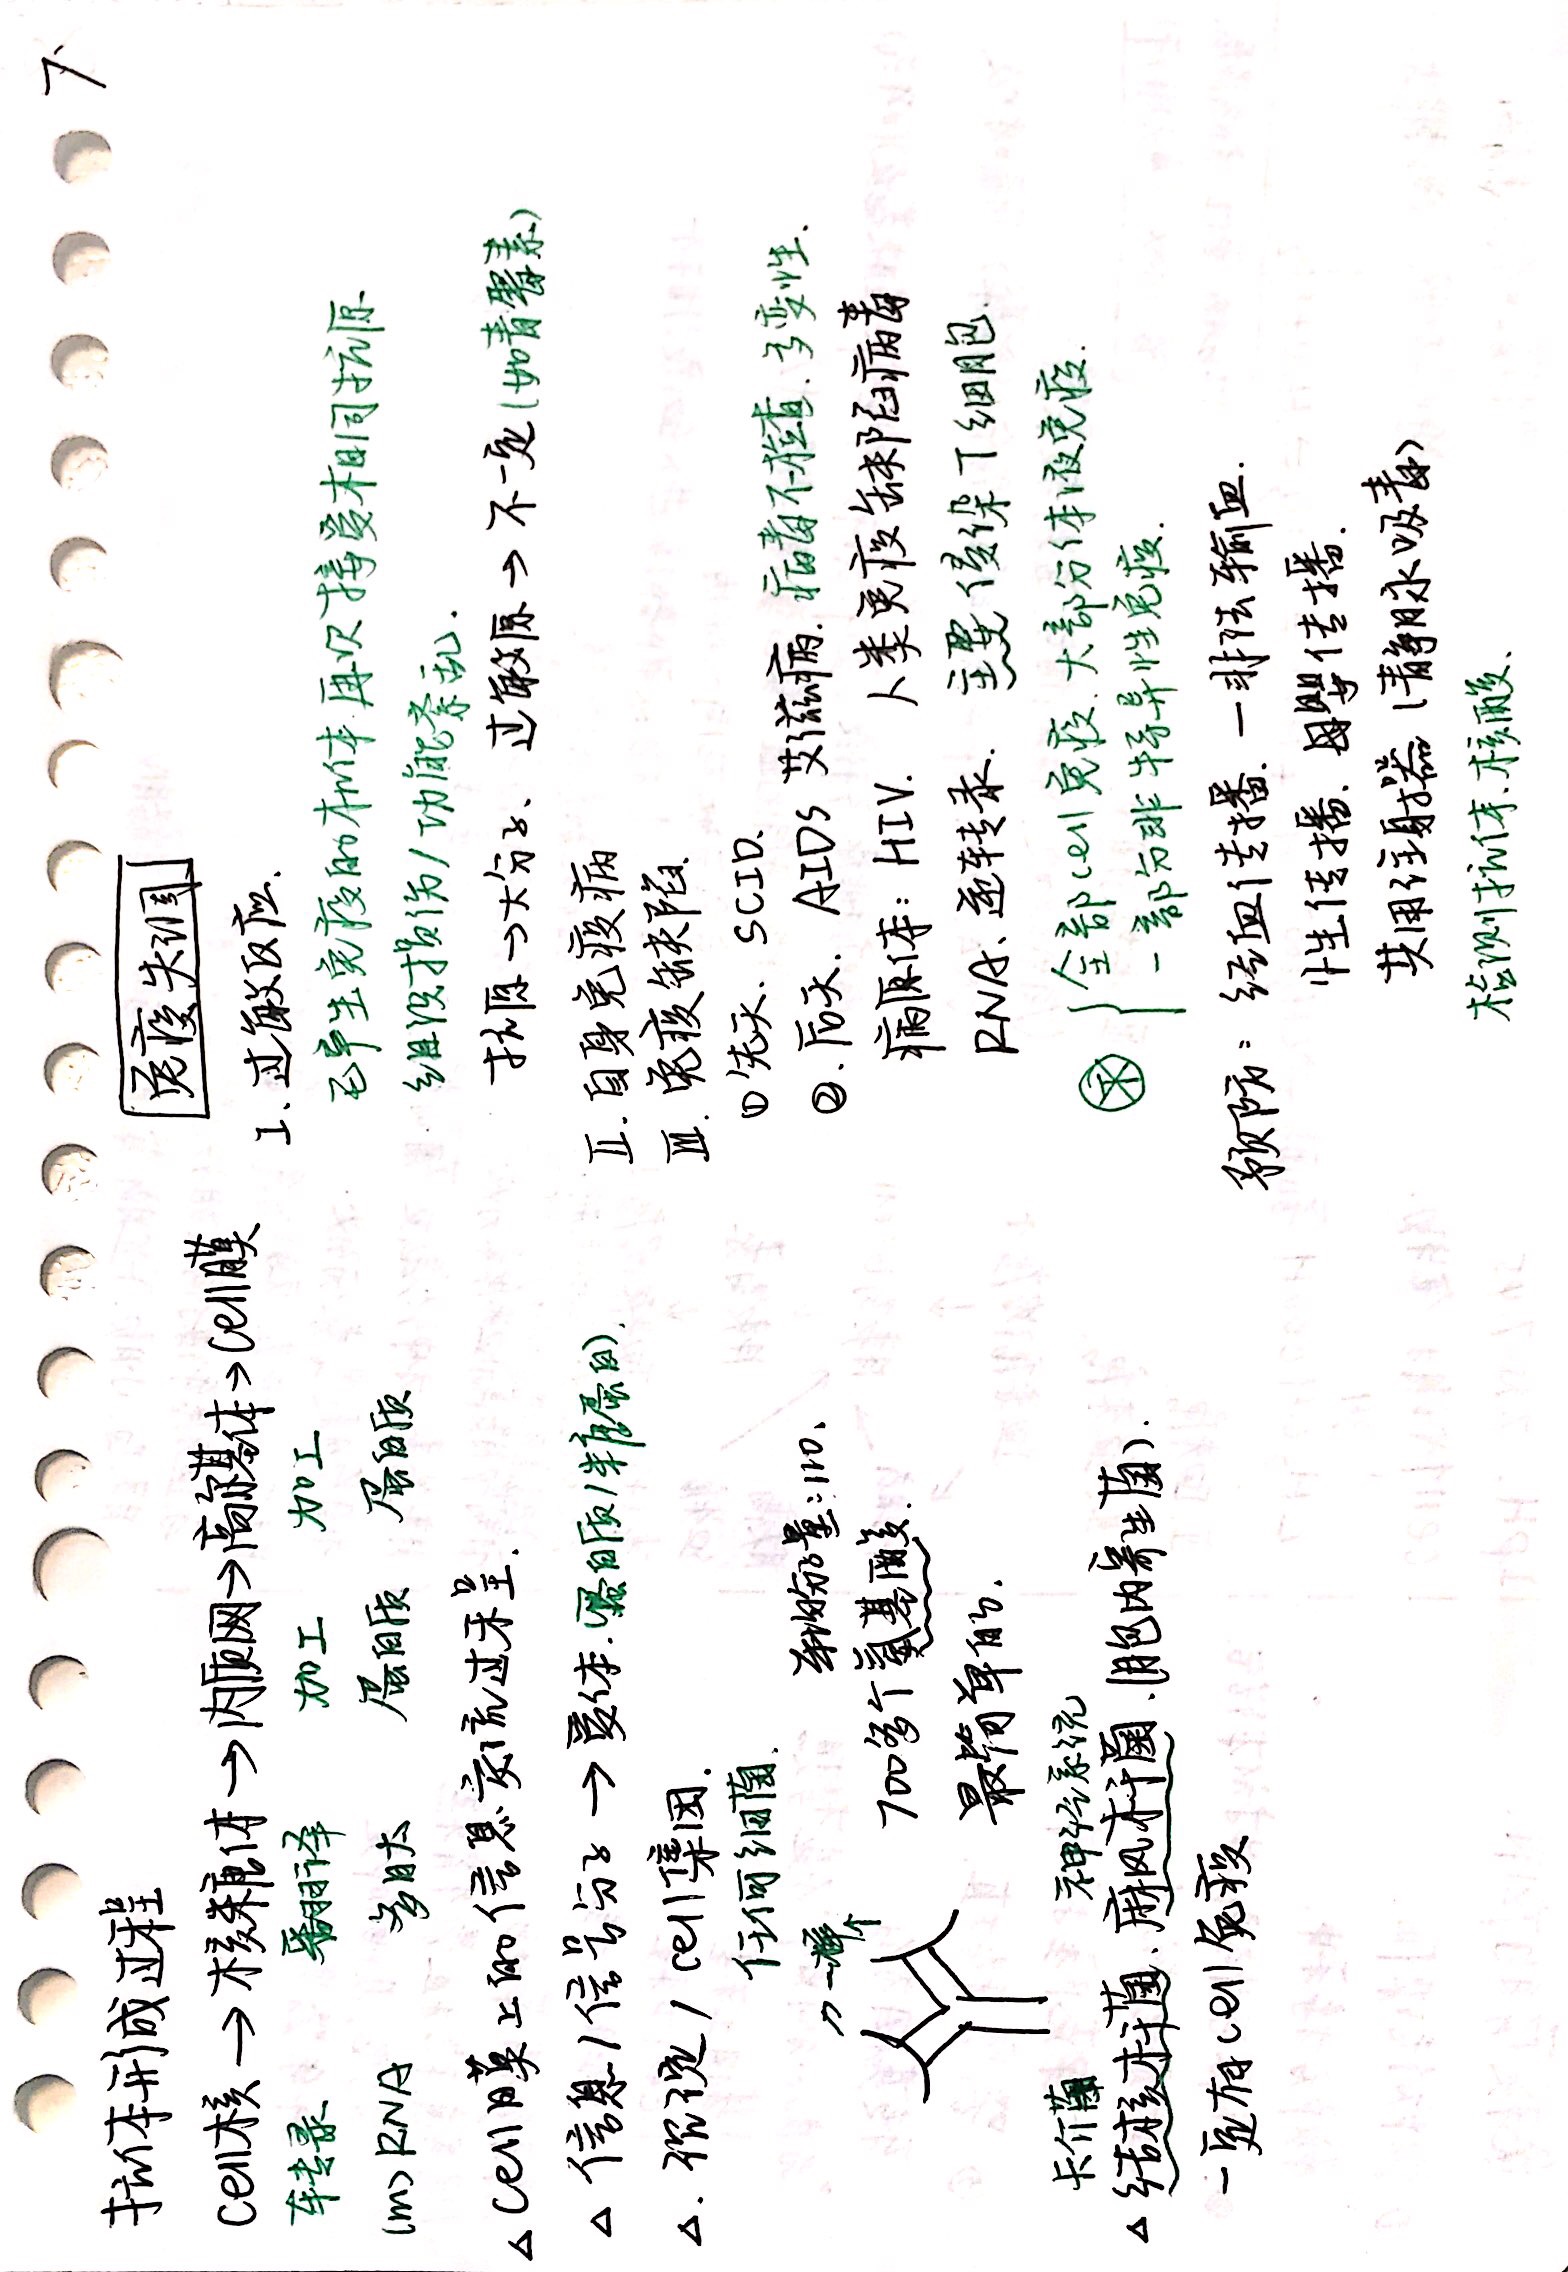 7
抗体形成过程
cell核→核糖体→内质网→高尔基体→cell膜
转录 翻译 加工 加工
(m)RNA 多肽 蛋白质 蛋白质
△ cell膜上的信息交流过程.
△ 信息/信号分子→受体.(蛋白质/糖蛋白).
△. 沉淀/cell集团.
任何细菌.
一样
700多个氨基酸.
最简单的.
卡介苗 神经系统
△ 结核杆菌、麻风杆菌(胞内寄生菌).
一定有cell免疫
免疫失调
I. 过敏反应.
已产生免疫的机体再次接受相同抗原
组织损伤/功能紊乱.
抗原→大分子、过敏原→不一定(如青霉素)
II. 自身免疫病
III. 免疫缺陷.
①先天. SCID.
②. 后天. AIDs 艾滋病. 病毒不检查. 多变性.
病原体: HIV. 人类免疫缺陷病毒
RNA、逆转录. 主要侵染T细胞.
全部cell免疫. 大部分体液免疫.
一部分非特异性免疫.
预防: 经血传播. 一非法输血.
性生传播. 母婴传播.
共用注射器(静脉吸毒)
检测抗体.核酸.